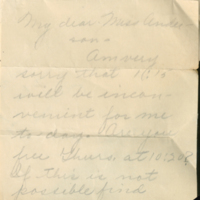 My dear Miss Ander-
son-
Am very
sorry that it is
will be incon-
venient for me
to-day. Are you
free Thurs. at 10:30?
If this is not
possible find